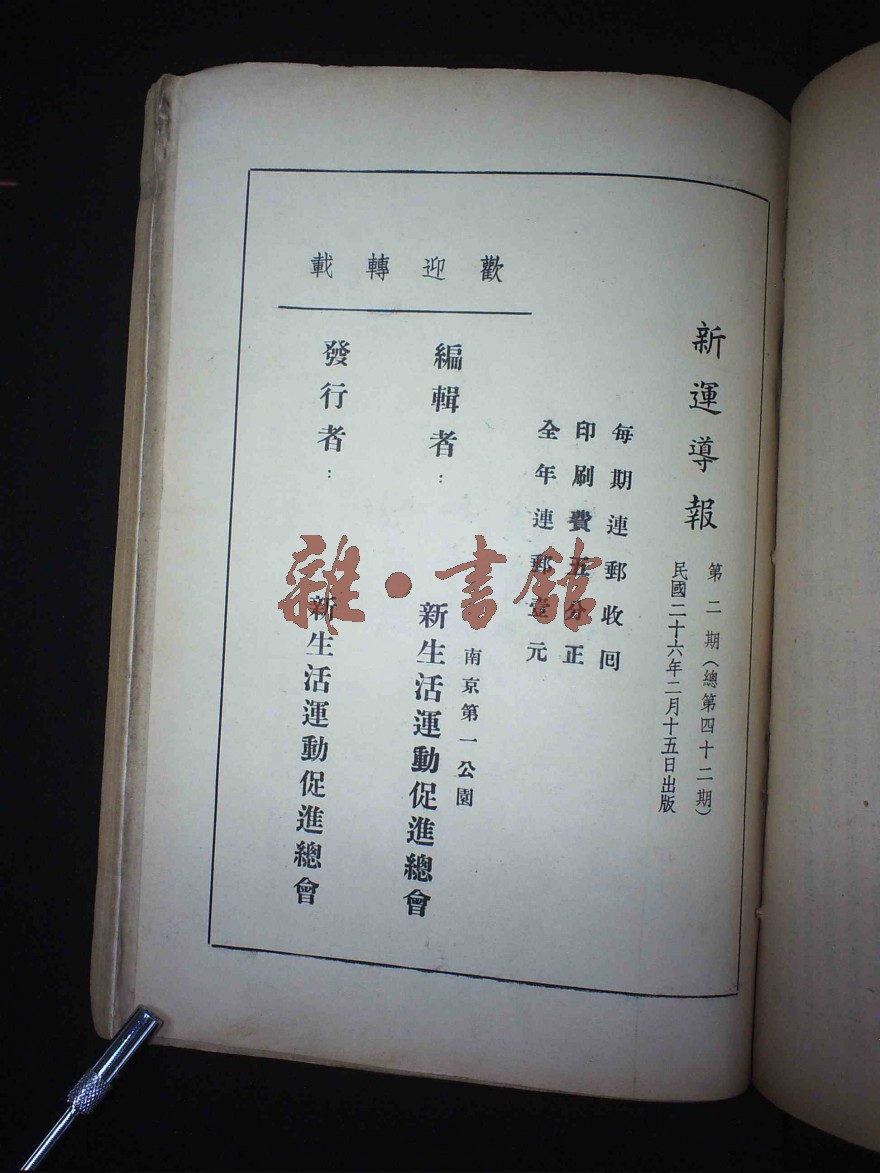 新運導報
第二期(總第四十二期)
民國二十六年二月十五日出版
每期連郵收回
印刷費五分正
全年連郵壹元
歡迎轉載
南京第一公園
編輯者:新生活運動促進總會
發行者:新生活運動促進總會
雜·書館